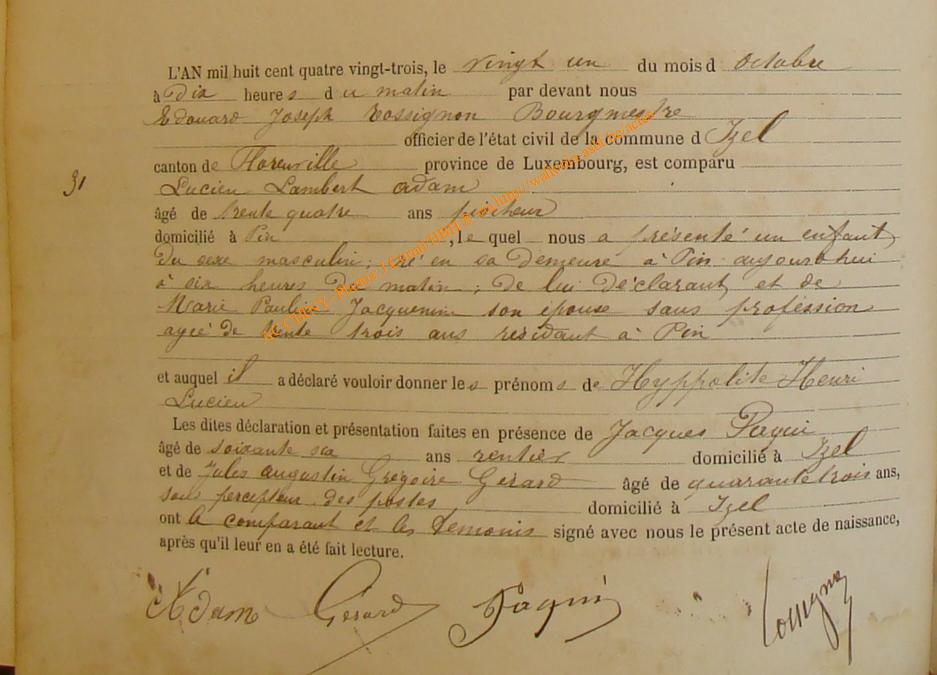 L'AN mil huit cent quatre vingt-trois, le vingt un du mois d octobre
à Dix heures du matin par devant nous
Edouard Joseph Rossignon Bourgmestre
officier de l'état civil de la commune d Izel
canton de Florenville province de Luxembourg, est comparu
31
Lucien Lambert adam
âgé de trente quatre ans
domicilié à Pin, le quel nous a présenté un enfant
du sexe masculin; né en sa Demeure à Pin aujourd'hui
à six heures du matin; de lui Déclarant et de
Marie Pauline Jacquemin son épouse sans profession
agée de trente trois ans residant à Pin
et auquel il a déclaré vouloir donner les prénoms de Hyppolite Henri
Lucien
Les dites déclaration et présentation faites en présence de Jacques Paqui
âgé de soixante six ans rentier domicilié à Izel
et de Jules augustin Grégoire Gerard âgé de quarante trois ans,
sous percepteur des postes domicilié à Izel
ont le comparant et les temoins signé avec nous le présent acte de naissance,
après qu'il leur en a été fait lecture.
Adam Gerard Paqui Rossignon